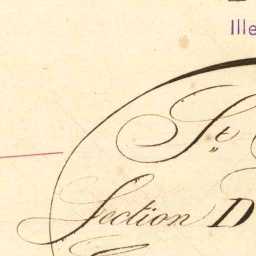 Ille
St
Section D